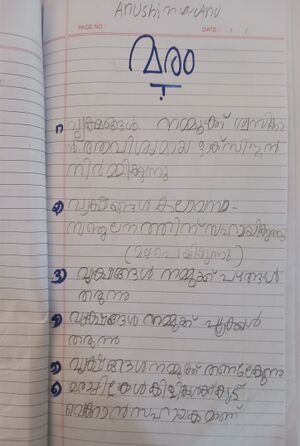 Anushin
PAGE NO.:
DATE: / /
മരം
1) വൃക്ഷങ്ങൾ നമ്മുക്ക് ശ്വസിക്കാ
ൻ ആവിശ്യമായ ഓക്സിജൻ
നിർമ്മിക്കുന്നു
2) വൃക്ഷങ്ങൾ കാലാവസ്ഥ
സന്തുലനത്തിന് സഹായിക്കുന്നു
(മഴപെയ്യിക്കുന്നു)
3) വൃക്ഷങ്ങൾ നമ്മുക്ക് പഴങ്ങൾ
തരുന്നു
4) വൃക്ഷങ്ങൾ നമ്മുക്ക് പൂക്കൾ
തരുന്നു
5) വൃക്ഷങ്ങൾ നമ്മുക്ക് തണലേകുന്നു
6) മരച്ചില്ലകൾ കിളികൾക്ക് കൂട്
വെക്കാൻ സഹായകമാണ്